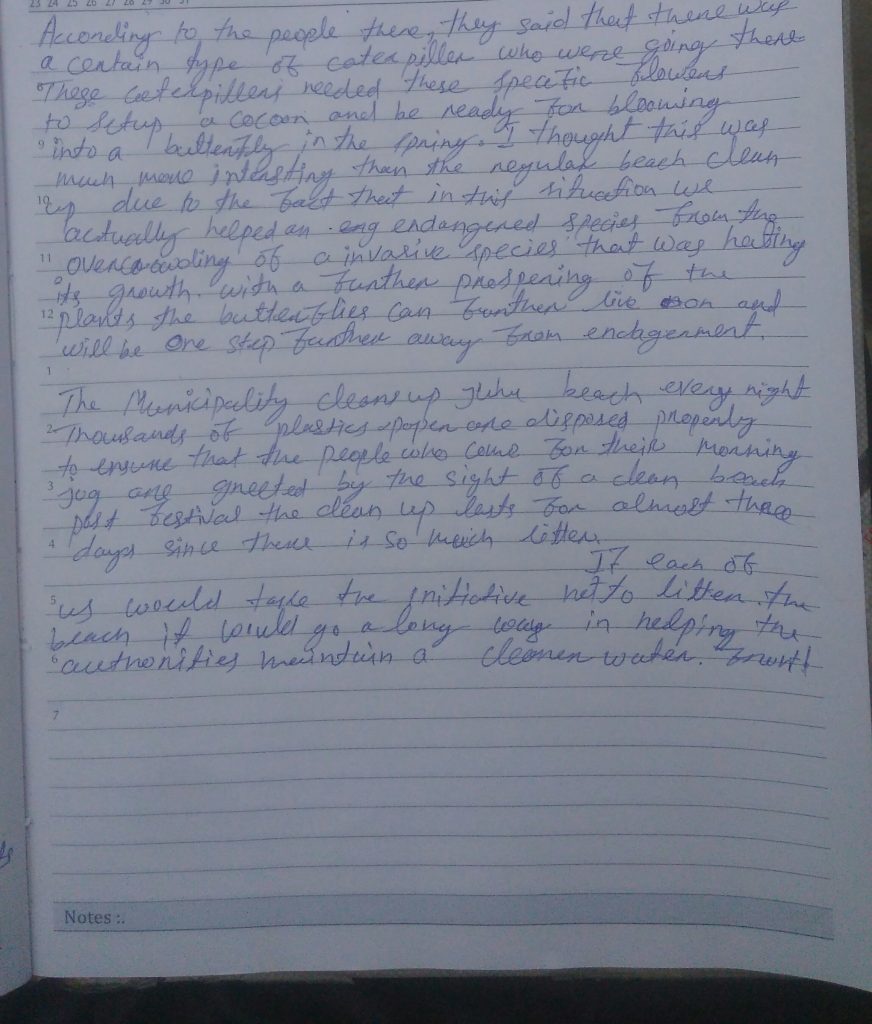 23 24 25 26 27 28 29 30 31
According to the people there, they said that there was
a certain type of caterpiller who were going there
These caterpillers needed these specific flowers
to setup a cocoon and be ready for blooming
9 into a butterfly in the spring. I thought this was
much more intersting than the regular beach clean
10 up due to the fact that in this situation we
actually helped an eng endangered species from the
11 overcrowding of a invasive species that was halting
its growth. with a further prospering of the
12 plants the butterflies can further live on and
will be one step further away from endagerment.
1
The Municipality cleans up Juhu beach every night
2 Thousands of plastics paper are disposed properly
to ensure that the people who come for their morning
3 jog are greeted by the sight of a clean beach
post festival the clean up lasts for almost three
4 days since there is so much litter.
If each of
5 us would take the initiative not to litter the
beach it would go a long way in helping the
6 authorities maintain a cleaner water.
7
Notes :.